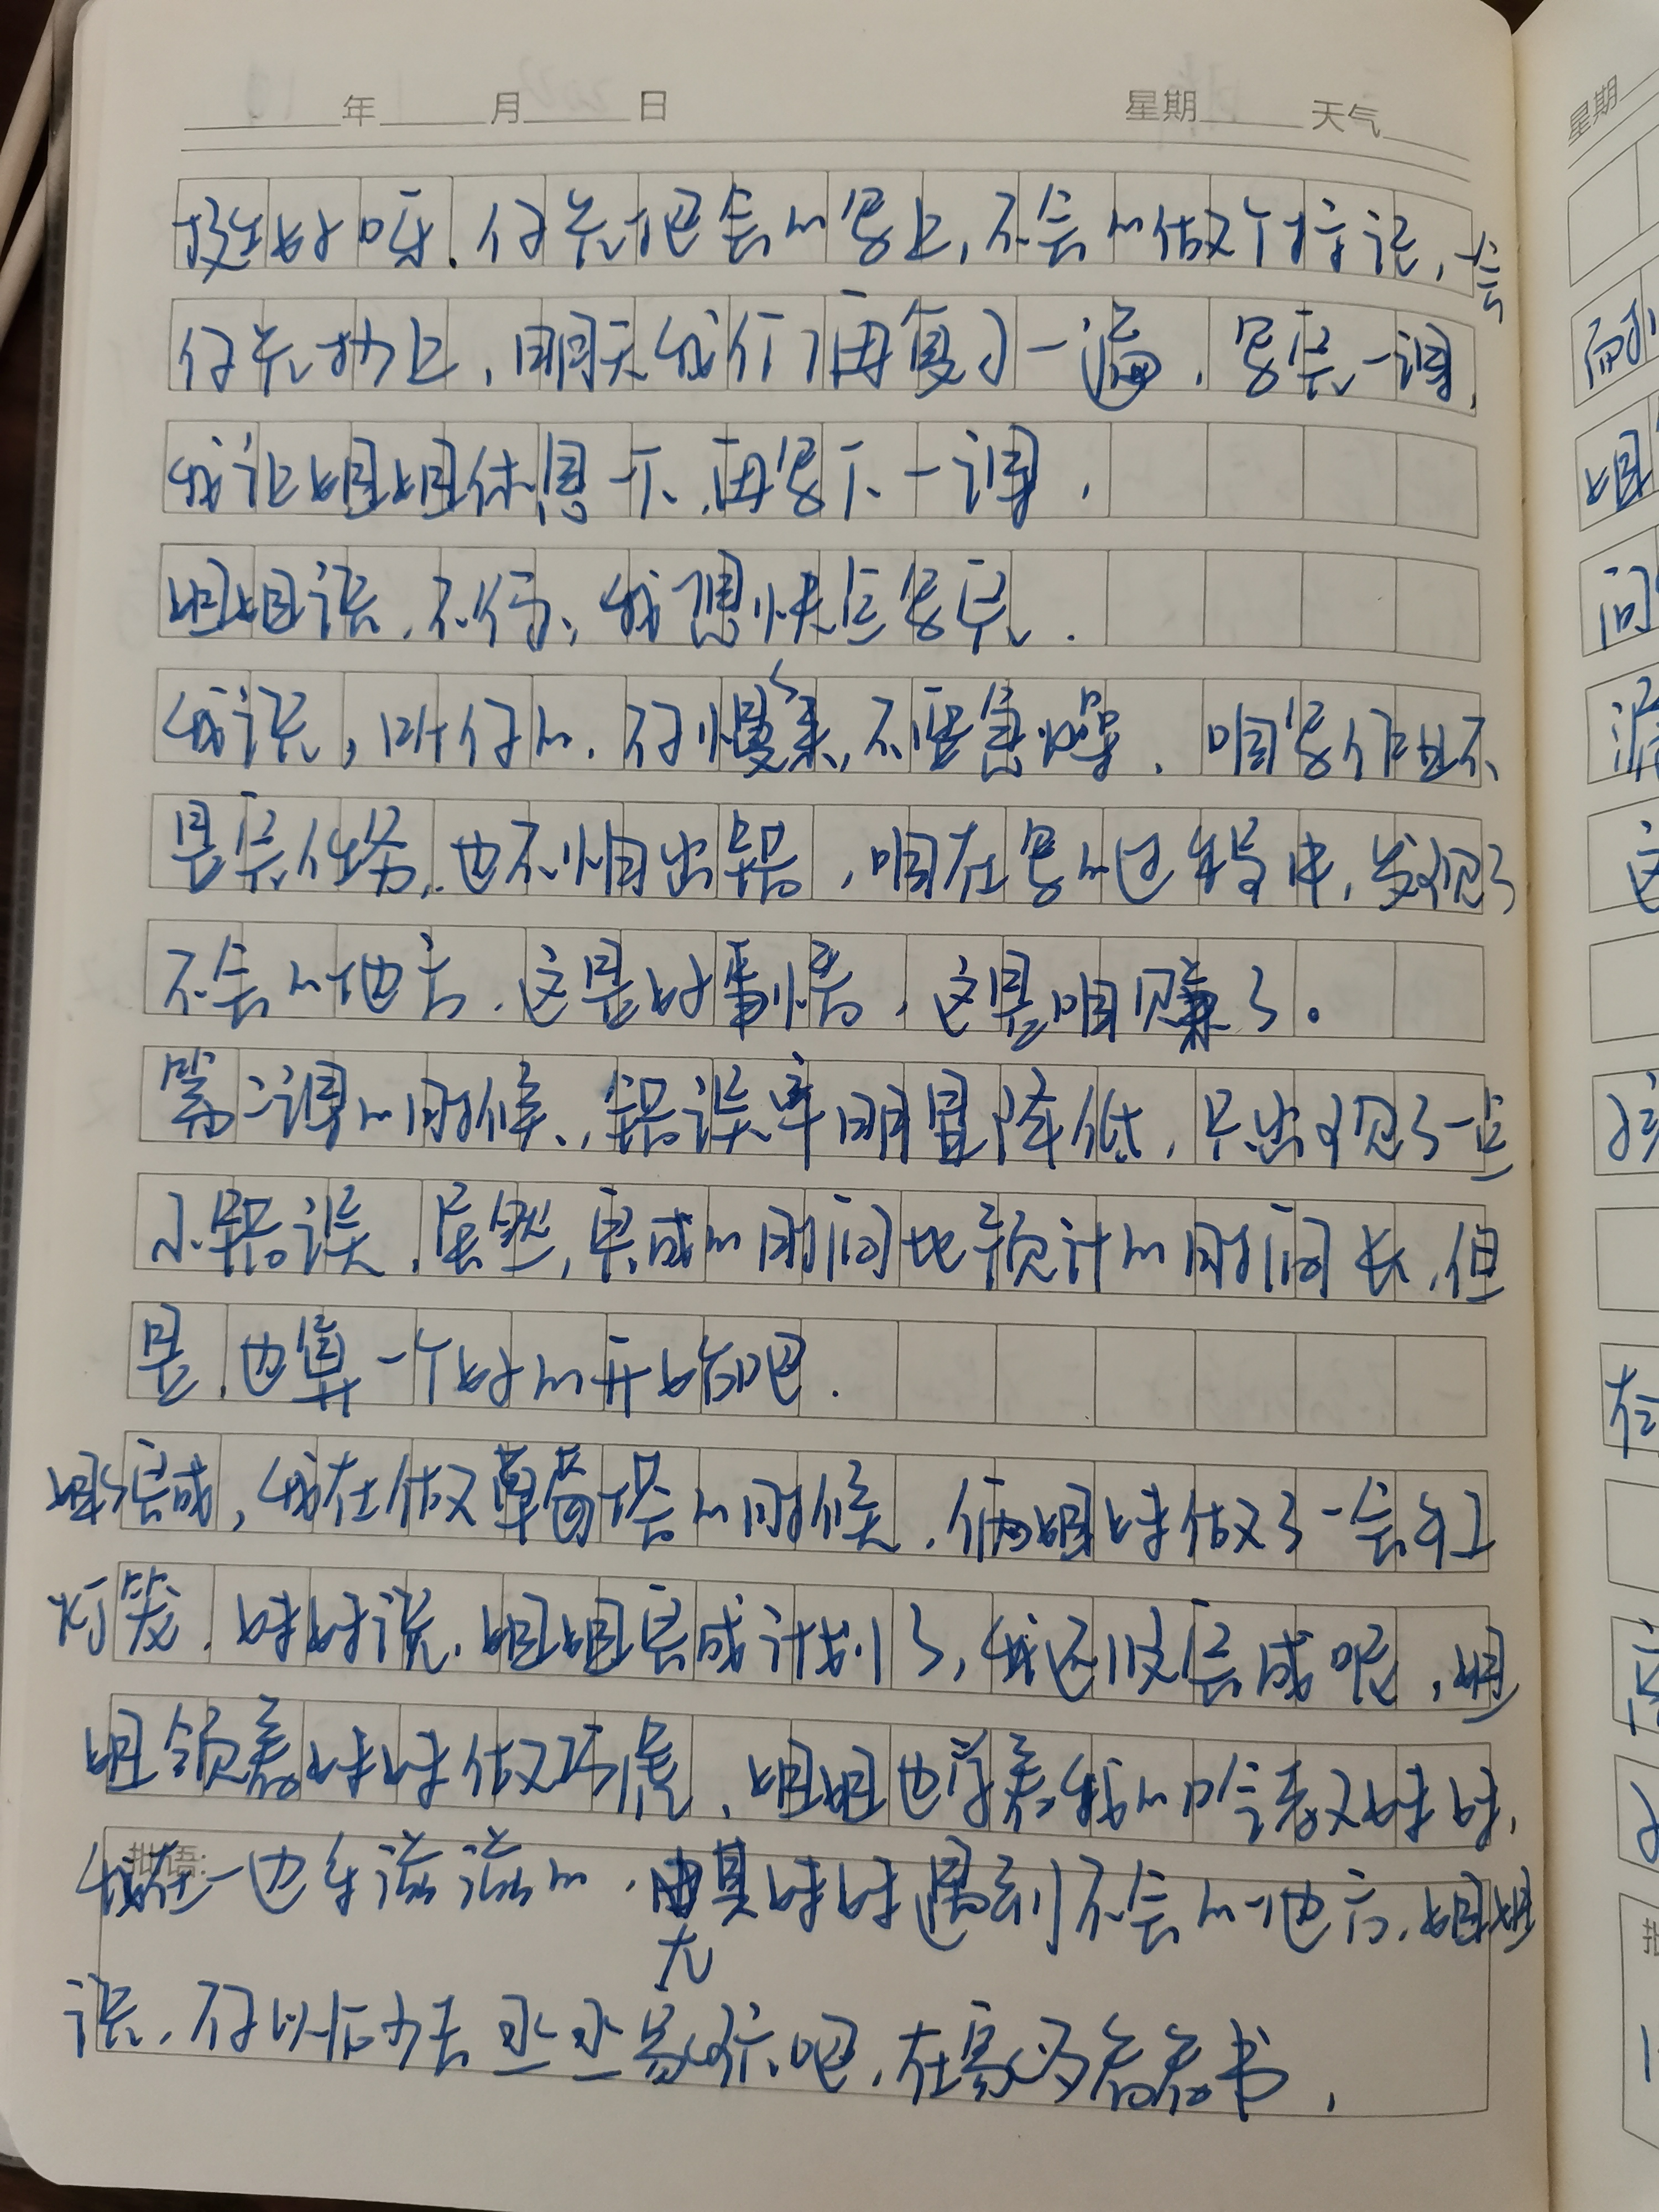 年 月 日 星期 天气
挺好呀.你先把会的写上,不会的做个标记,
你先抄上,明天我们再复习一遍.写完一课,
我让姐姐休息一下.再写下一课.
姐姐说.不行,我想快点写完.
我说,听你的.不慢来,不要急燥.咱写作业不
是完任务.也不怕出错,咱在写的过程中,发现了
不会的地方.这是好事情,这是咱赚了。
第二课的时候,错误率明显降低,只出现了一点
小错误.虽然,完成的时间比预计的时间长,但
是.也算一个好的开始吧.
完成,我在做草莓的时候.俩姐妹做了一会红
灯笼.妹妹说.姐姐完成计划了,我还没完成呢,姐
姐领着妹妹做巧虎.姐姐也学着我的口令教妹妹,
批语:
我在一边乐滋滋的.尤其妹妹遇到不会的地方.姐姐
说.吧,在家多看看书,
星期
姐
问
这
在